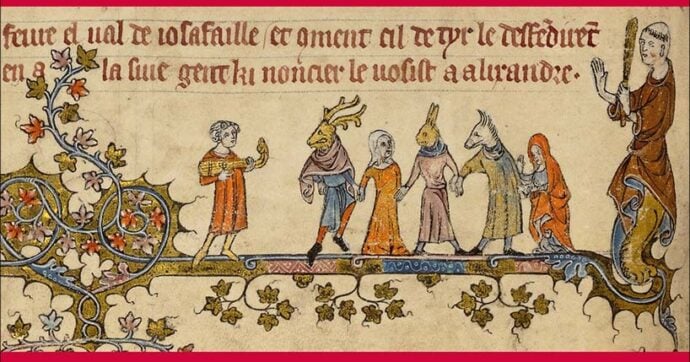 feure el ual de iosafaille / et ꝯment cil de tyr le desfēdirēt
en a la siue gent ki noncier le uosist a alixandre.